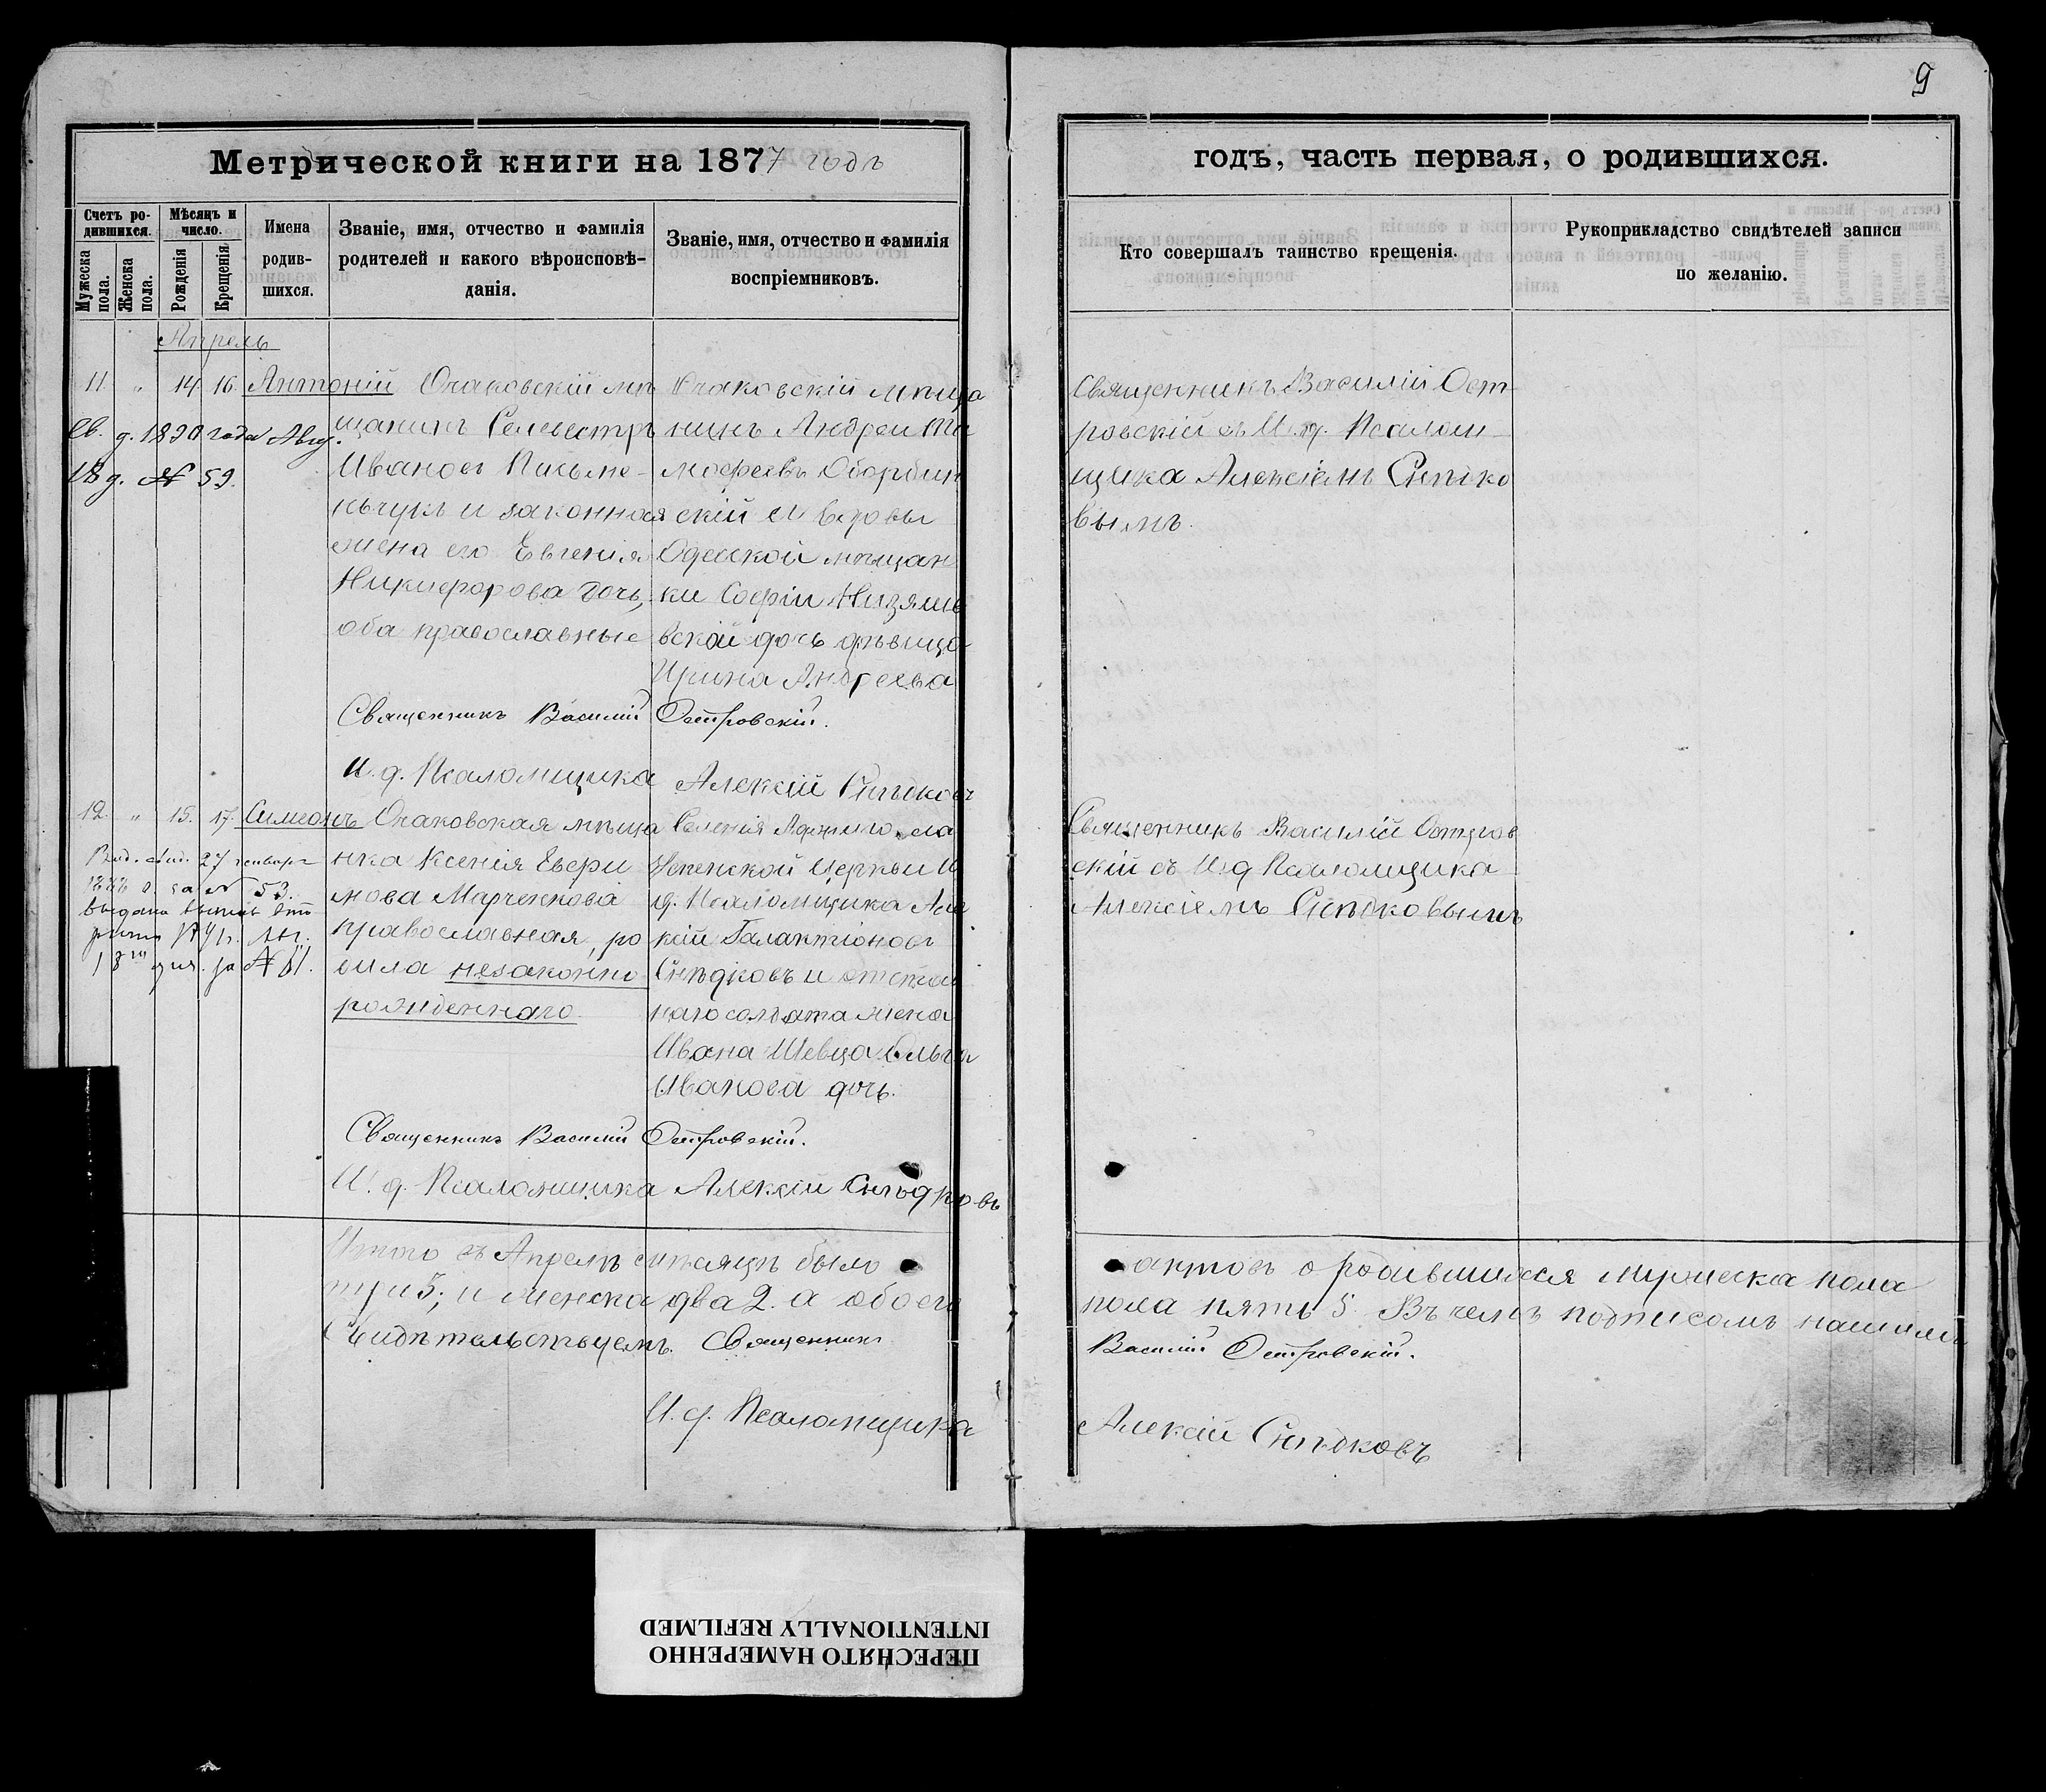 9
Метрической книги на 1877 годъ
годъ, часть первая, о родившихся.
Счетъ родившихся.
Мужеска пола.
Женска пола.
Мѣсяцъ и число.
Рожденія
Крещенія
Имена родившихся.
Званіе, имя, отчество и фамилія
родителей и какого вѣроисповѣ-
данія.
Званіе, имя, отчество и фамилія
воспріемниковъ.
Кто совершалъ таинство крещенія.
Рукоприкладство свидѣтелей записи
по желанію.
Апрель
11. " 14. 16. Антоній
Св. д. 1890 года Авг.
18 д. № 59.
Очаковскій мѣ
щанинъ Селвестръ
Ивановъ Письме-
ньчукъ и законная
жена его Евгенія
Никифорова дочь,
оба православные
Очаковскій мѣща
нинъ Андреи Ти
мофеевъ
скій и вдовы
Одесской мѣщан
ки Софіи
вской дочь дѣвица
Ирина Андреева
Священникъ Василій Островскій.
И. д. Псаломщика Алексій Снѣдковъ
Священникъ Василій Ост-
ровскій съ И. д. Псалом-
щика Алексіемъ Снѣдко
вымъ.
12. " 15. 17. Симеонъ
27 января
за № 53.
№ 81.
Очаковская мѣща
нка Ксенія Евфри
мова Марченкова
православная, ро
дила незаконно-
рожденнаго.
Селенія
Церкви И
д. Псаломщика Але
ксій Галактіоновъ
Снѣдковъ и отстав
наго солдата жена
Ивана Шевца Ольга
Иванова дочь.
Священникъ Василій Островскій.
И. д. Псаломщика Алексій Снѣдковъ
Священникъ Василій Остров
скій съ И. д. Псаломщика
Алексіемъ Снѣдковымъ
Итого въ Апрелѣ мѣсяцѣ было актовъ о родившихся мужеска пола
три 3; и женска два 2. а обоего пола пять 5. Въ чемъ подписомъ нашимъ
Свидѣтельствуемъ. Священникъ Василій Островскій.
И. д. Псаломщика Алексій Снѣдковъ
ПЕРЕСНЯТО НАМЕРЕННО
INTENTIONALLY REFILMED